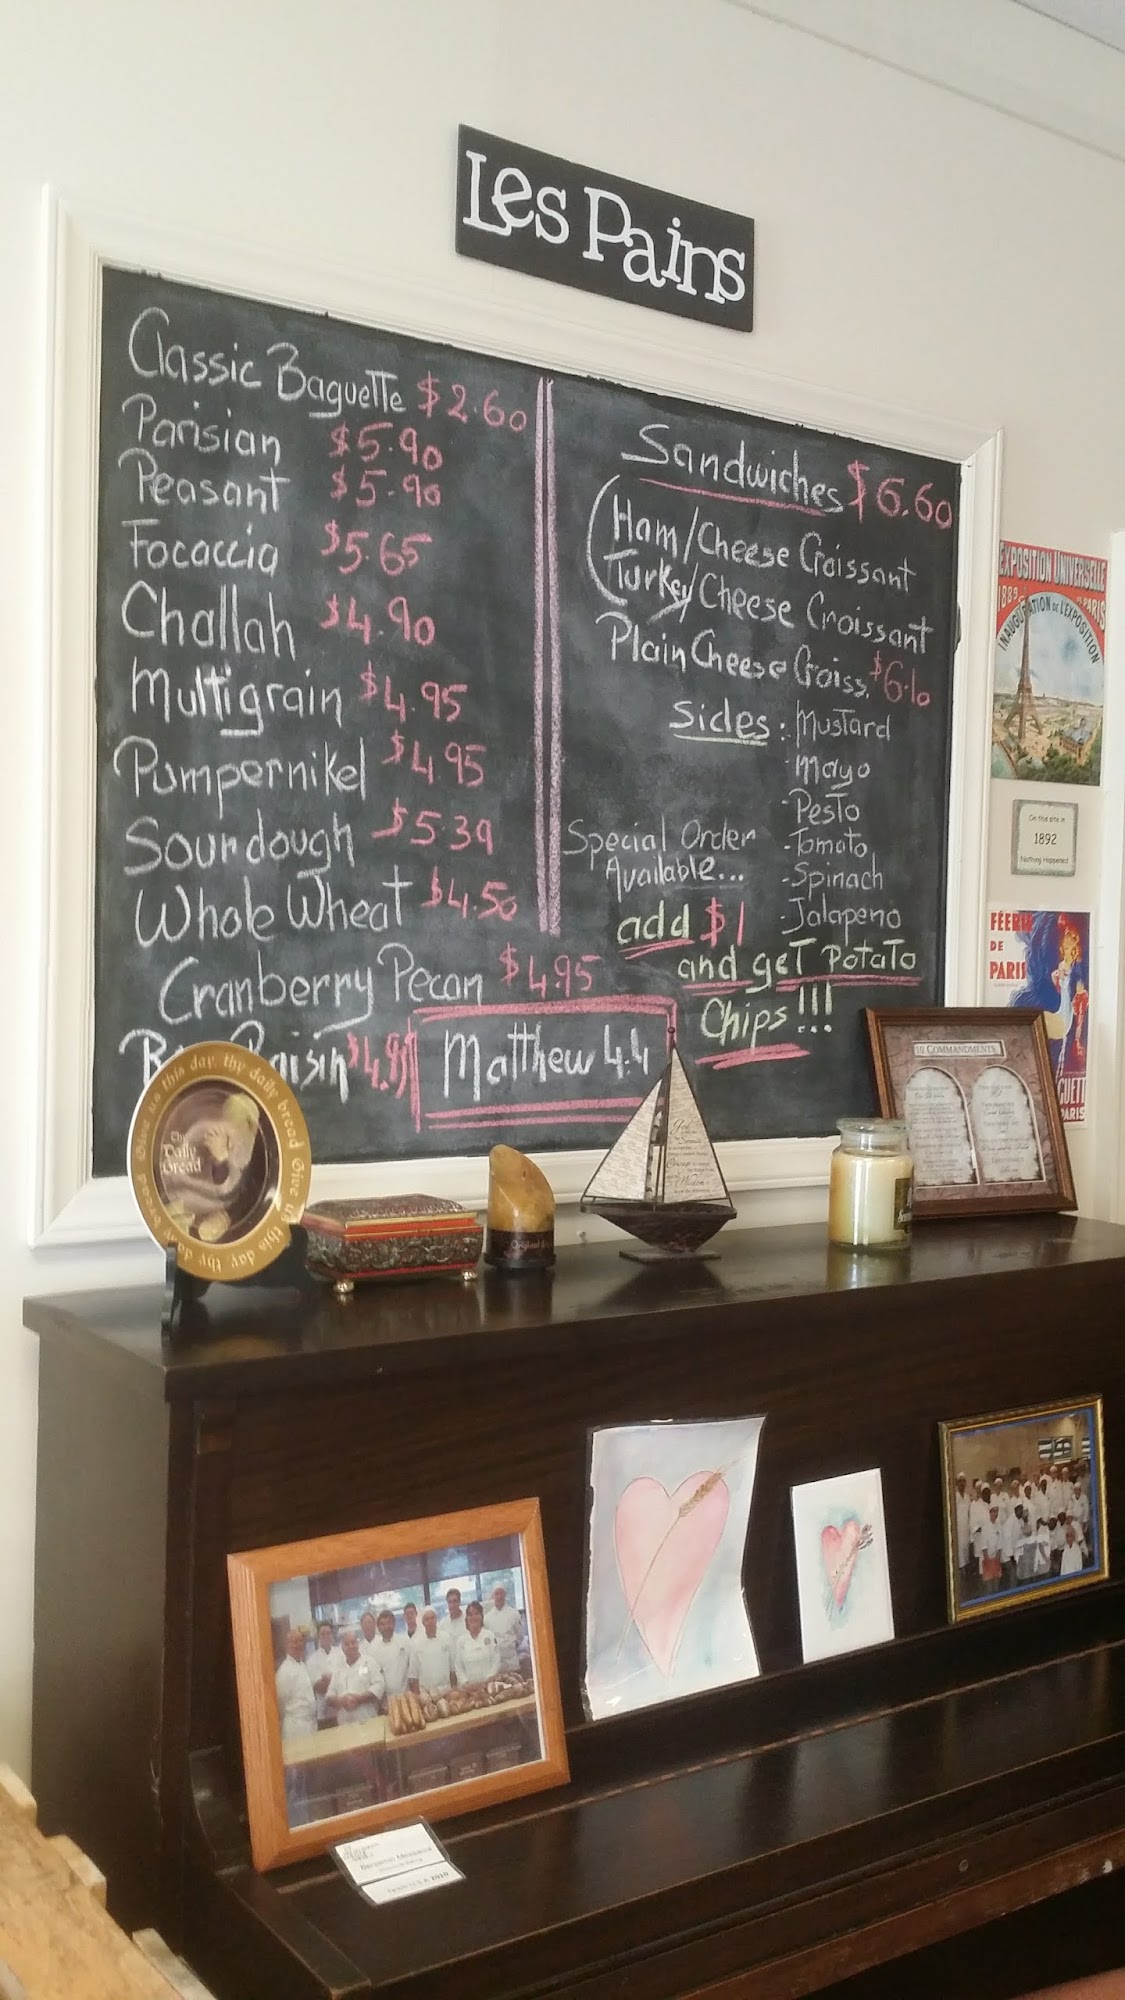 Les Pains
Classic Baguette $2.60
Parisian $5.90
Peasant $5.90
Focaccia $5.65
Challah $4.90
Multigrain $4.95
Pumpernikel $4.95
Sourdough $5.39
Whole Wheat $4.50
Cranberry Pecan $4.95
Raisin $4.95
Matthew 4.4
Sandwiches $6.60
Ham/Cheese Croissant
Turkey/Cheese Croissant
Plain Cheese Croiss. $6.10
Sides: Mustard
-Mayo
-Pesto
-Tomato
-Spinach
-Jalapeno
Special Order
Available...
add $1
and get Potato
Chips!!!
EXPOSITION UNIVERSELLE
1889 PARIS
INAUGURATION DE L'EXPOSITION
On this site in
1892
Nothing Happened
FÉERIE
DE
PARIS
PARIS
10 COMMANDMENTS
Give us this day thy daily bread Give us this day thy daily bread
The
Daily
Bread
Team U.S.A 2010